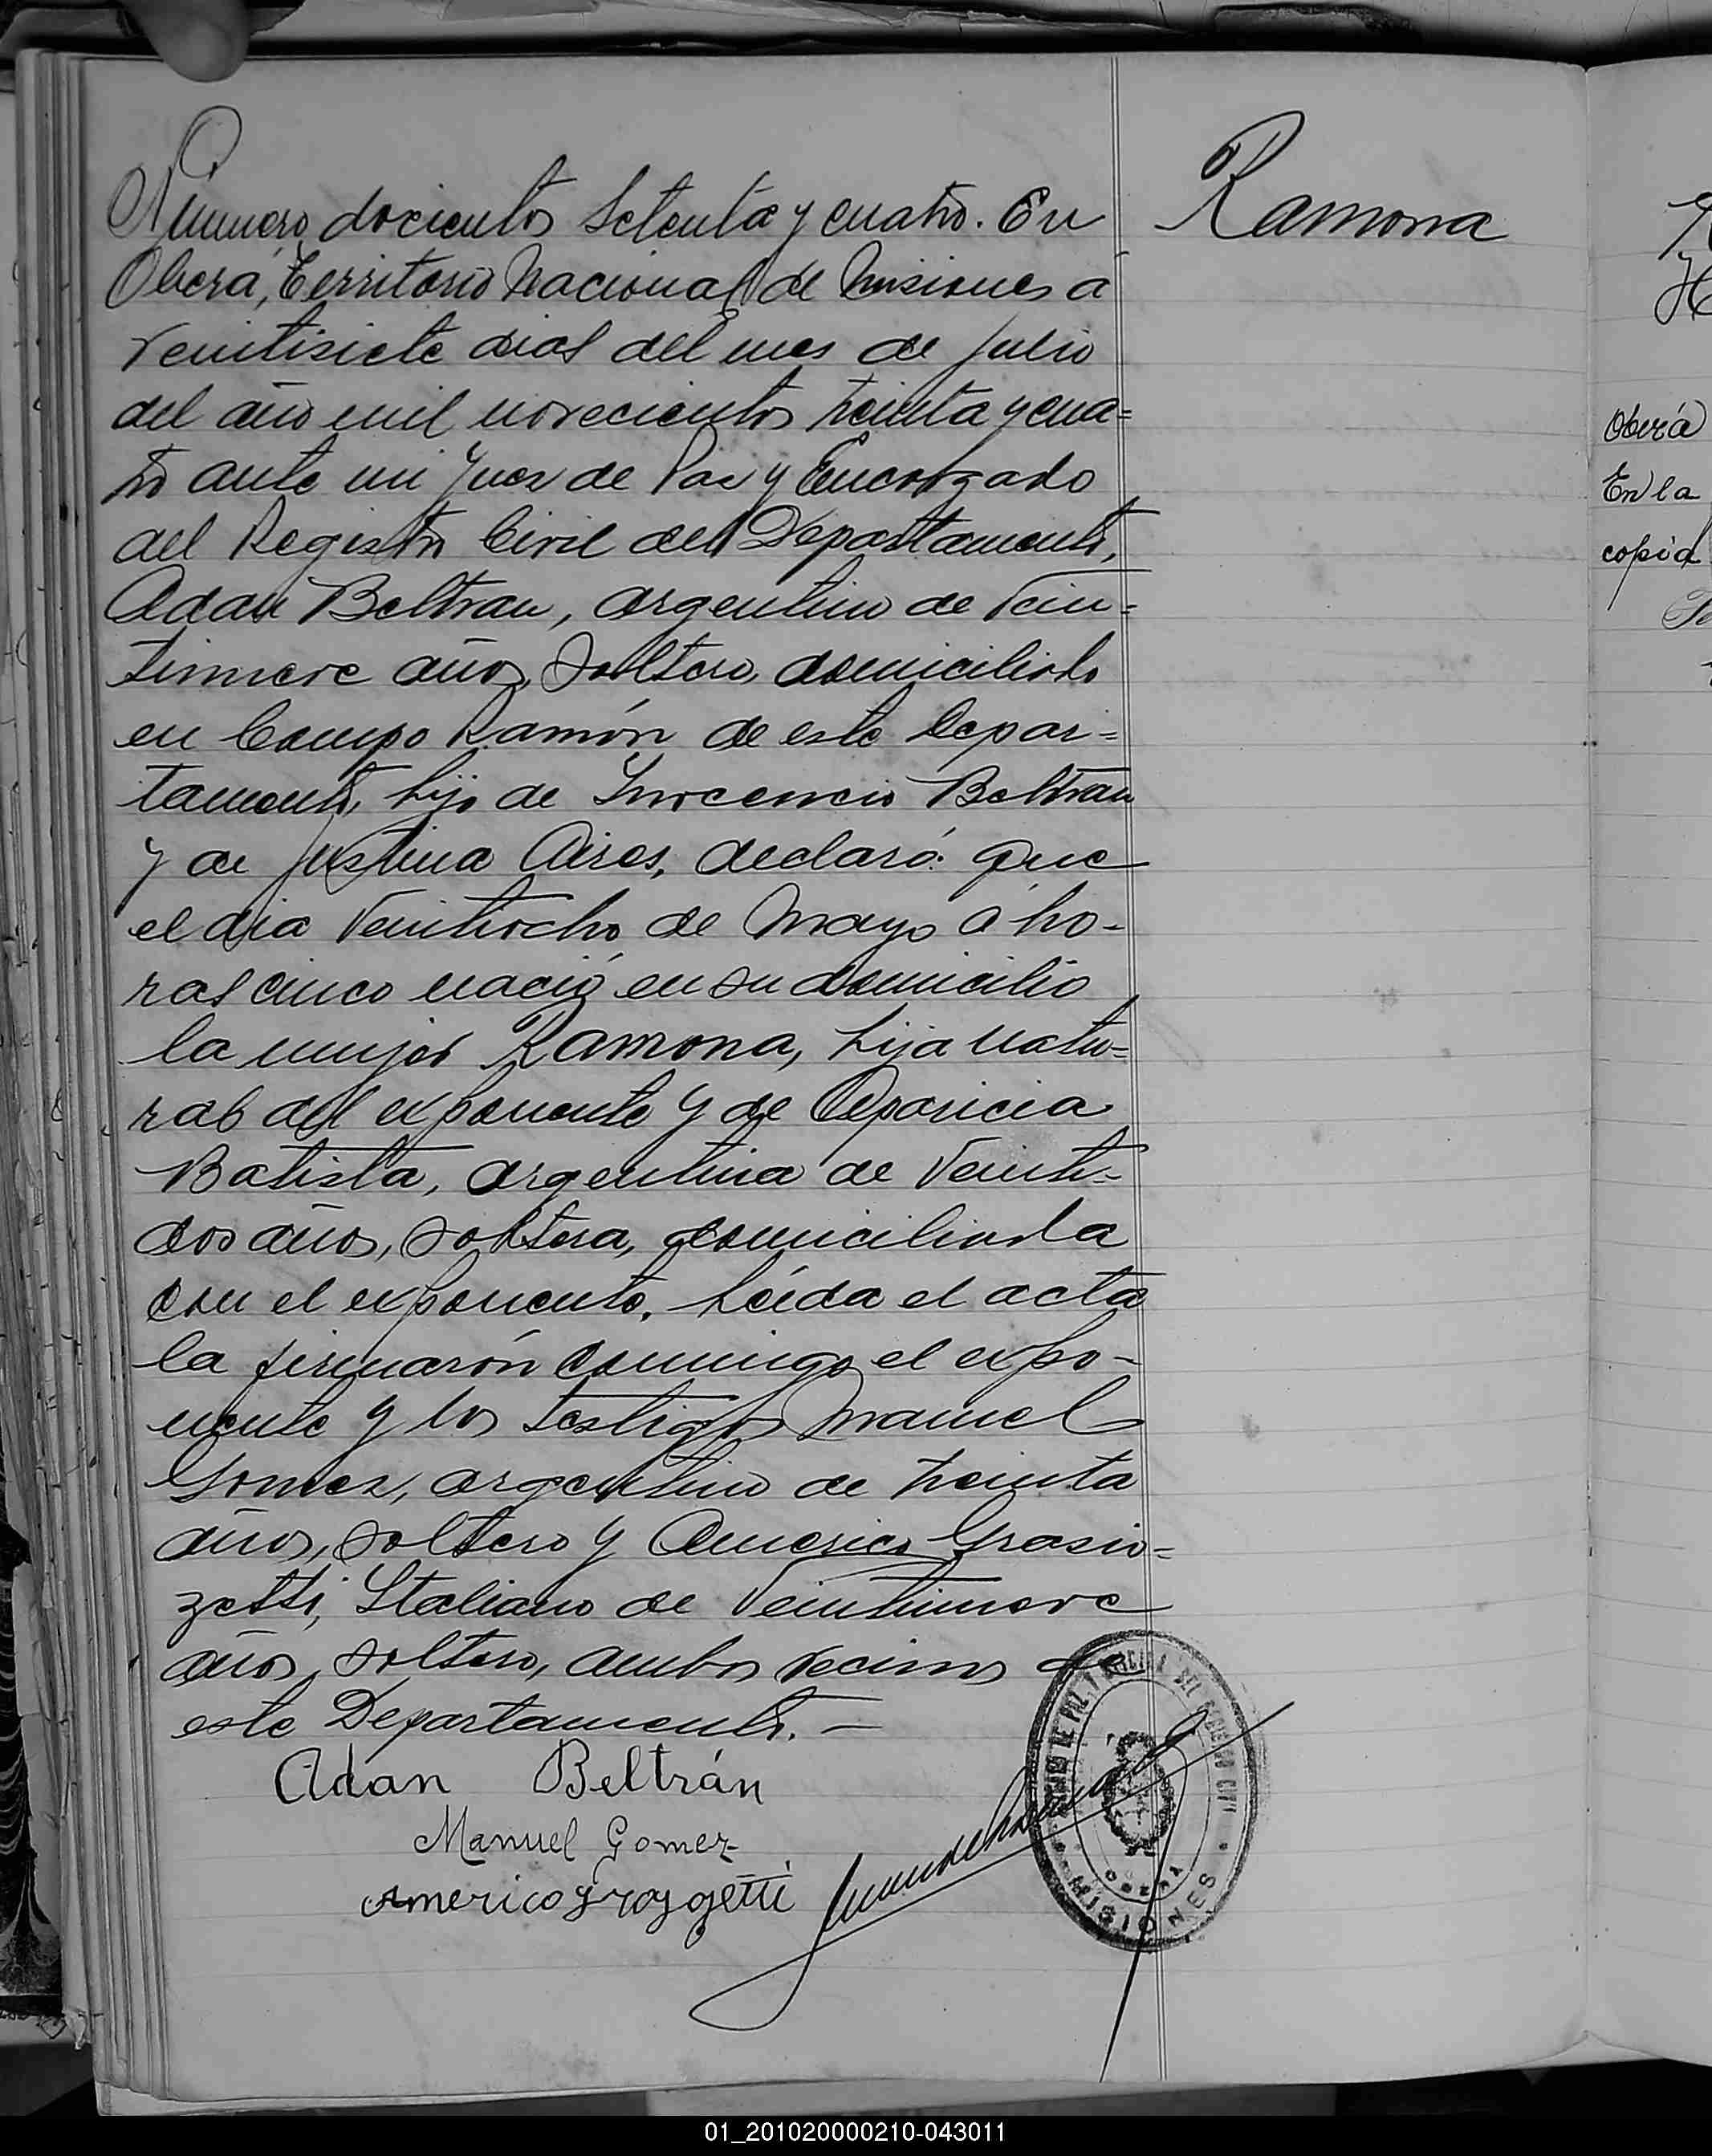 Número docientos setenta y cuatro. En
Oberá, Territorio Nacional de Misiones a
veintisiete dias del mes de Julio
del año mil novecientos treinta y cua=
tro ante mi Juez de Paz y Encargado
del Registro Civil del Departamento,
Adan Beltran, argentino de vein=
tinueve años, soltero, domiciliado
en Campo Ramón de este Depar=
tamento, hijo de Inocencio Beltran
y de Justina Aires, declaró: que
el dia veintiocho de Mayo a ho-
ras cinco nació en su domicilio
la mujer Ramona, hija natu=
ral del exponente y de Aparicia
Batista, argentina de veinti=
dos años, soltera, domiciliada
con el exponente. Leída el acta
la firmarón conmigo el expo-
nente y los testigos Manuel
Gomez, argentino de treinta
años, soltero y Americo Grasio=
zetti, Italiano de veintinueve
años, soltero, ambos vecinos de
este Departamento. —
Adan Beltrán
Manuel Gomez
Americo
Ramona
JUZGADO DE PAZ Y OFICINA DEL REGISTRO CIVIL
OBERA
MISIONES
Oberá
En la
copia
01_201020000210-043011